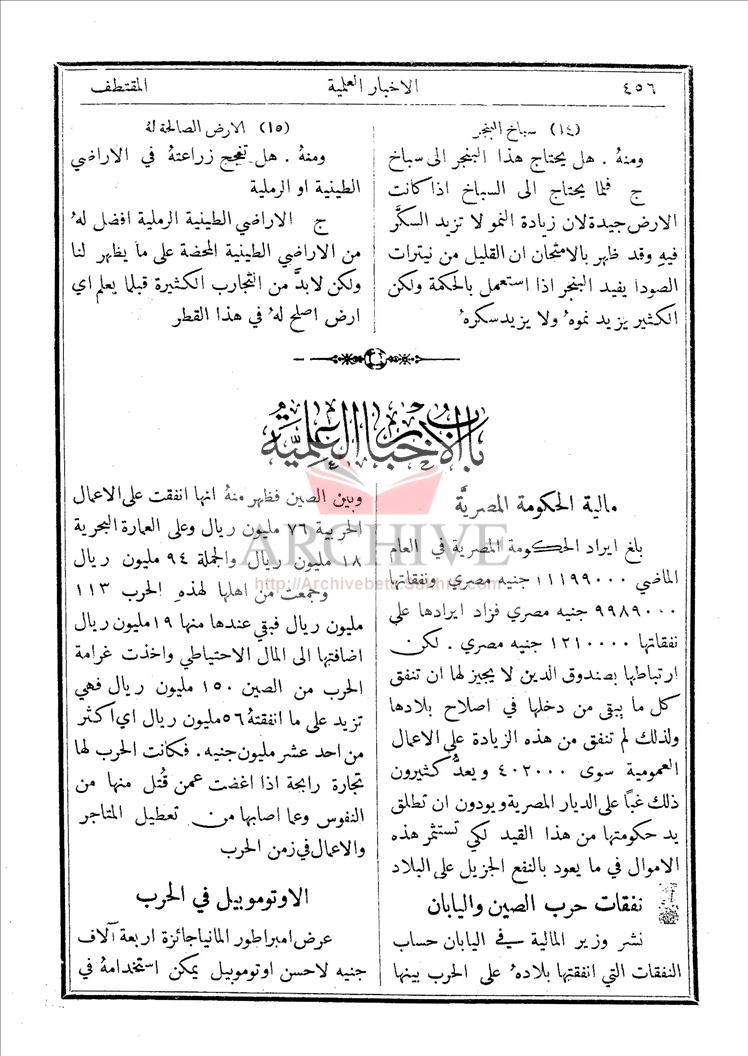 ٤٥٦
الاخبار العلمية
المقتطف
(١٤) سباخ البنجر
ومنهُ . هل يحتاج هذا البنجر الى سباخ
ج فلما يحتاج الى السباخ اذا كانت
الارض جيدة لان زيادة النمو لا تزيد السكَّر
فيهِ وقد ظهر بالامتحان ان القليل من نيترات
الصودا يفيد البنجر اذا استعمل بالحكمة ولكن
الكثير يزيد نموهُ ولا يزيد سكرهُ
(١٥) الارض الصالحة لهُ
ومنهُ . هل تنجح زراعتهُ في الاراضي
الطينية او الرملية
ج الاراضي الطينية الرملية افضل لهُ
من الاراضي الطينية المحضة على ما يظهر لنا
ولكن لابدَّ من التجارب الكثيرة قبلما يعلم اي
ارض اصلح لهُ في هذا القطر
باب الاخبار العلميَّة
مالية الحكومة المصريَّة
بلغ ايراد الحكومة المصرية في العام
الماضي ١١١٩٩٠٠٠ جنيه مصري ونفقاتها
٩٩٨٩٠٠٠ جنيه مصري فزاد ايرادها على
نفقاتها ١٢١٠٠٠٠ جنيه مصري . لكن
ارتباطها بصندوق الدين لا يجيز لها ان تنفق
كل ما يبقى من دخلها في اصلاح بلادها
ولذلك لم تنفق من هذه الزيادة على الاعمال
العمومية سوى ٤٠٢٠٠٠ ويعدُّ كثيرون
ذلك غبنًا على الديار المصرية ويودون ان تطلق
يد حكومتها من هذا القيد لكي تستثمر هذه
الاموال في ما يعود بالنفع الجزيل على البلاد
نفقات حرب الصين واليابان
نشر وزير المالية في اليابان حساب
النفقات التي انفقتها بلادهُ على الحرب بينها
وبين الصين فظهر منهُ انها انفقت على الاعمال
الحربية ٧٦ مليون ريال وعلى العمارة البحرية
١٨ مليون ريال والجملة ٩٤ مليون ريال
وجمعت من اهلها لهذهِ الحرب ١١٣
مليون ريال فبقي عندها منها ١٩ مليون ريال
اضافتها الى المال الاحتياطي واخذت غرامة
الحرب من الصين ١٥٠ مليون ريال فهي
تزيد على ما انفقتهُ ٥٦ مليون ريال اي اكثر
من احد عشر مليون جنيه. فكانت الحرب لها
تجارة رابحة اذا اغضت عمن قُتل منها من
النفوس وعما اصابها من تعطيل المتاجر
والاعمال في زمن الحرب
الاوتوموبيل في الحرب
عرض امبراطور المانيا جائزة اربعة آلاف
جنيه لاحسن اوتوموبيل يمكن استخدامهُ في
ARCHIVE
http://Archivebeta.Sakhrit.com